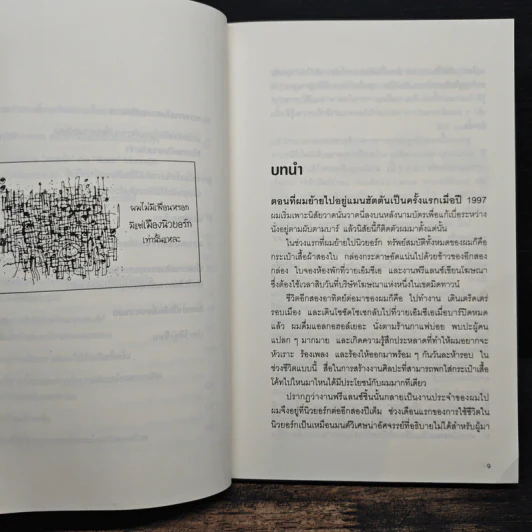 ผมไม่มีเพื่อนหรอก
มีแค่เมืองนิวยอร์ก
เท่านั้นแหละ
บทนำ
ตอนที่ผมย้ายไปอยู่แมนฮัตตันเป็นครั้งแรกเมื่อปี 1997
ผมเริ่มเพาะนิสัยวาดนั่นวาดนี่ลงบนหลังนามบัตรเพื่อแก้เบื่อระหว่าง
นั่งอยู่ตามผับตามบาร์ แล้วนิสัยนี้ก็ติดตัวผมมาตั้งแต่นั้น
ในช่วงแรกที่ผมย้ายไปนิวยอร์ก ทรัพย์สมบัติทั้งหมดของผมก็คือ
กระเป๋าเสื้อผ้าสองใบ กล่องกระดาษอัดแน่นไปด้วยข้าวของอีกสอง
กล่อง ใบจองห้องพักที่วายเอ็มซีเอ และงานฟรีแลนซ์เขียนโฆษณา
ซึ่งต้องใช้เวลาสิบวันที่บริษัทโฆษณาแห่งหนึ่งในเขตมิดทาวน์
ชีวิตอีกสองอาทิตย์ต่อมาของผมก็คือ ไปทำงาน เดินเตร็ดเตร่
รอบเมือง และเดินโซซัดโซเซกลับไปที่วายเอ็มซีเอเมื่อบาร์ปิดหมด
แล้ว ผมดื่มแอลกอฮอล์เยอะ นั่งตามร้านกาแฟบ่อย พบปะผู้คน
แปลก ๆ มากมาย และเกิดความรู้สึกประหลาดที่ทำให้ผมอยากจะ
หัวเราะ ร้องเพลง และร้องไห้ออกมาพร้อม ๆ กันวันละห้ารอบ ใน
ช่วงชีวิตแบบนี้ สื่อในการสร้างงานศิลปะที่สามารถพกใส่กระเป๋าเสื้อ
โค้ทไปไหนมาไหนได้มีประโยชน์กับผมมากทีเดียว
ปรากฏว่างานฟรีแลนซ์ชิ้นนั้นกลายเป็นงานประจำของผมไป
ผมจึงอยู่ที่นิวยอร์กต่ออีกสองปีเต็ม ช่วงเดือนแรกของการใช้ชีวิตใน
นิวยอร์กเป็นเหมือนมนต์วิเศษน่าอัศจรรย์ที่อธิบายไม่ได้สำหรับผู้มา
9